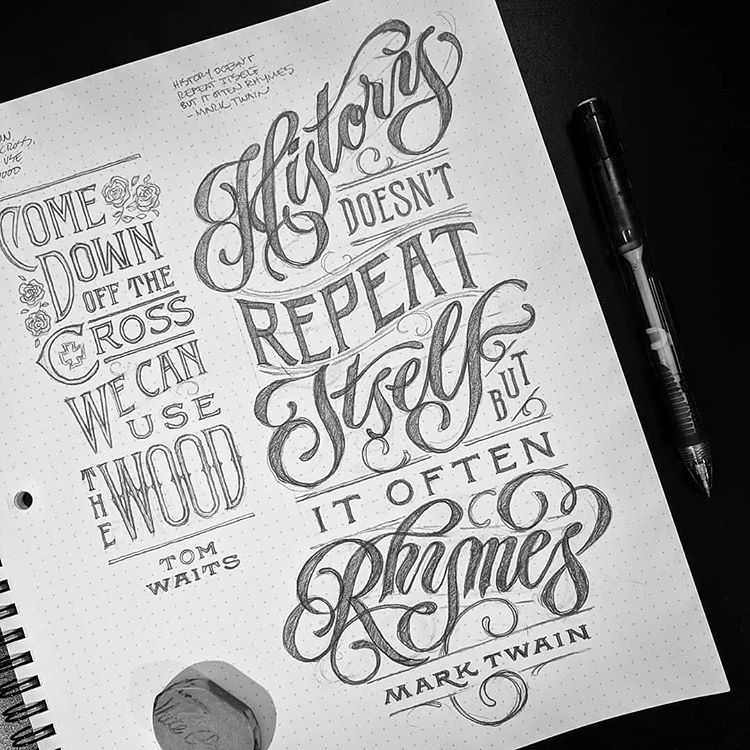 HISTORY DOESN'T
REPEAT ITSELF
BUT IT OFTEN RHYMES
- MARK TWAIN
CROSS,
USE
COME
DOWN
OFF THE
CROSS
WE CAN
USE
THE WOOD
TOM
WAITS
History
DOESN'T
REPEAT
Itself
BUT
IT OFTEN
Rhymes
MARK TWAIN